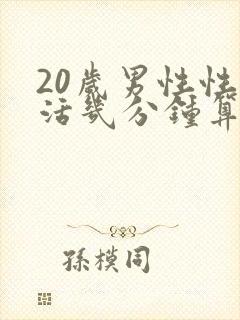 20歲男性性
活幾分鐘算
孫模同